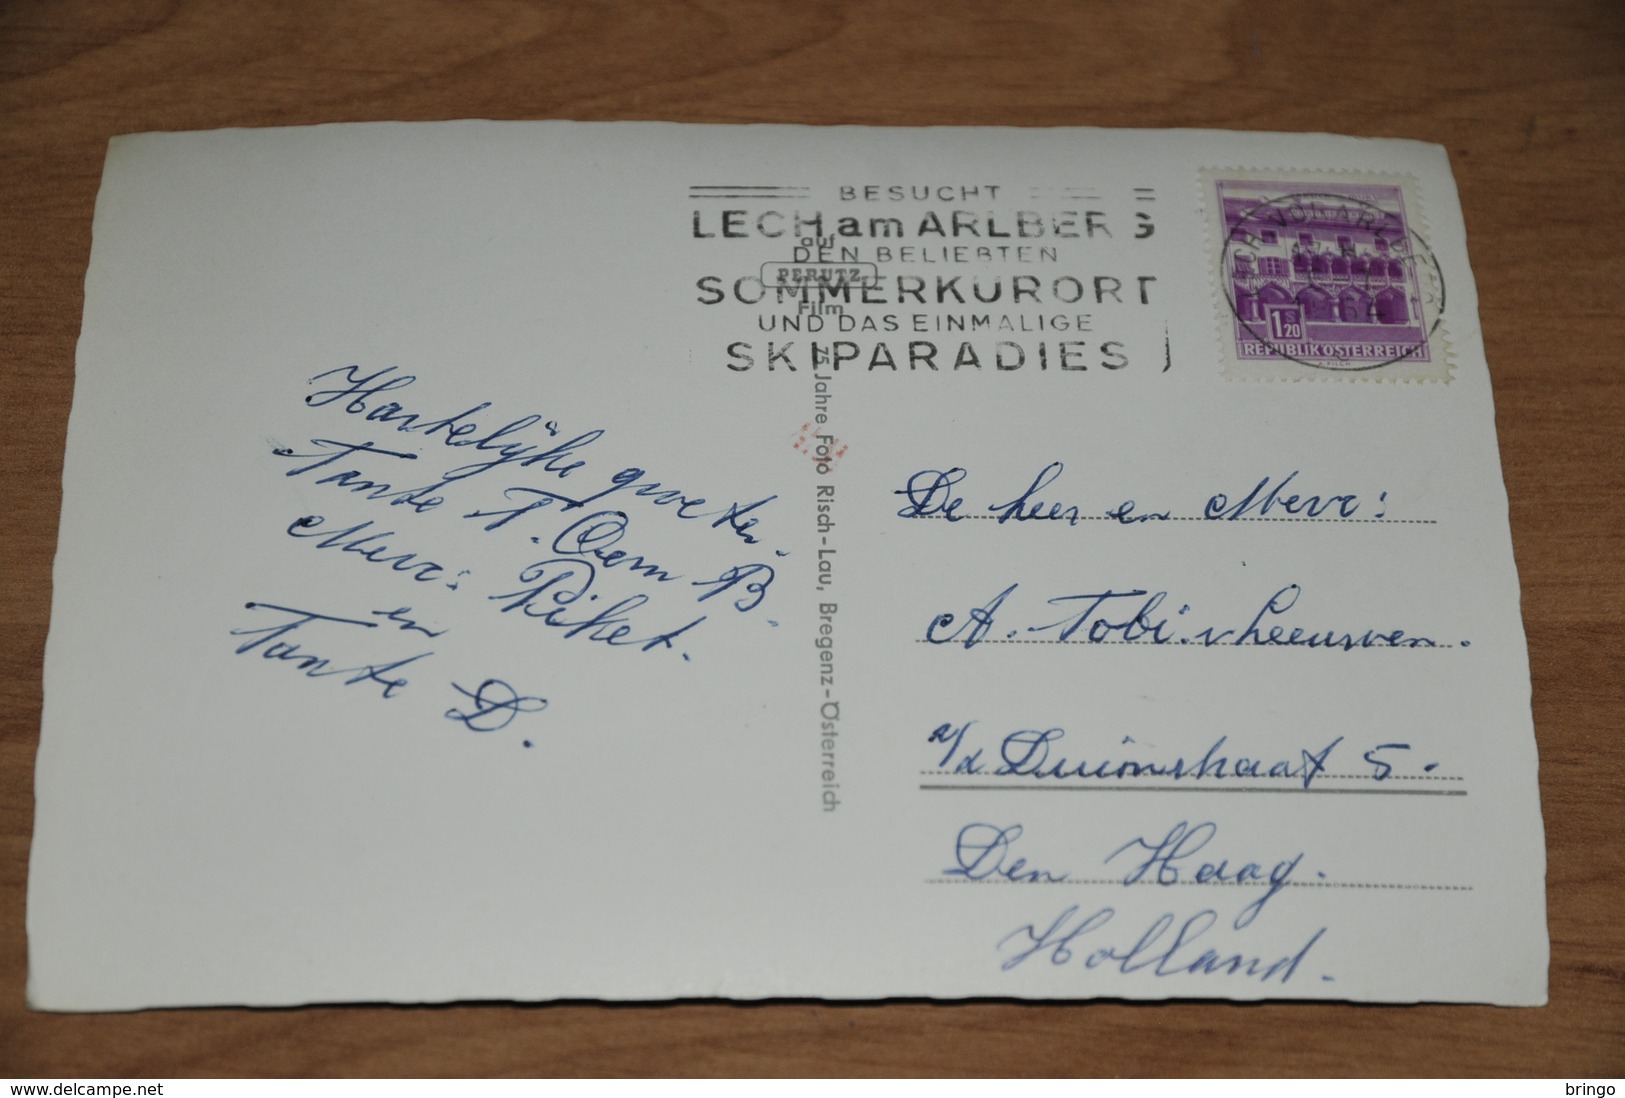 BESUCHT
LECH am ARLBERG
DEN BELIEBTEN
SOMMERKURORT
UND DAS EINMALIGE
SKIPARADIES
auf
PERUTZ
Film
75 Jahre Foto Risch-Lau, Bregenz-Österreich
1 S 20
REPUBLIK ÖSTERREICH
Hartelijke groeten.
Tante T. Oom B.
Mevr: Piket.
en
Tante D.
De heer en Mevr:
A. Tobi. v Leeuwen.
5.
Den Haag.
Holland.
delcampe.net
bringo